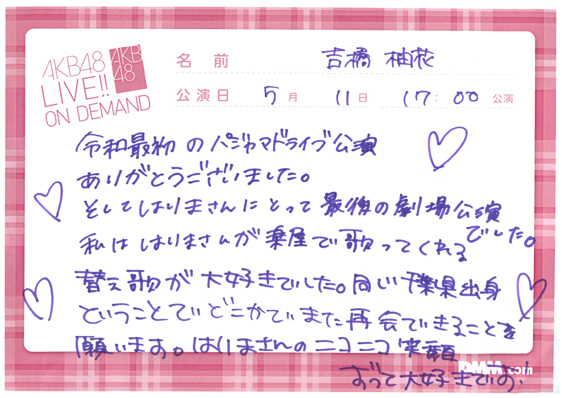 AKB48
LIVE!!
ON DEMAND
AKB
48
名前 吉橋 柚花
公演日 5月 11日 17:00 公演
令和最初のパジャマドライブ公演
ありがとうございました。
そしてはりまさんにとって最後の劇場公演
でした。
私ははりまさんが楽屋で歌ってくれる
替え歌が大好きでした。同じ千葉県出身
ということでどこかでまた再会できることを
願います。はりまさんのニコニコ笑顔
ずっと大好きです。
DMM.com